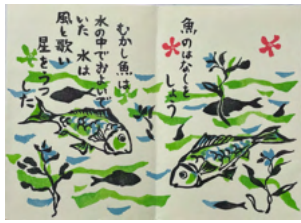 魚のはなしを
しよう
むかし魚は
水の中でおよいで
いた 水は
風と歌い
星をうつ
した